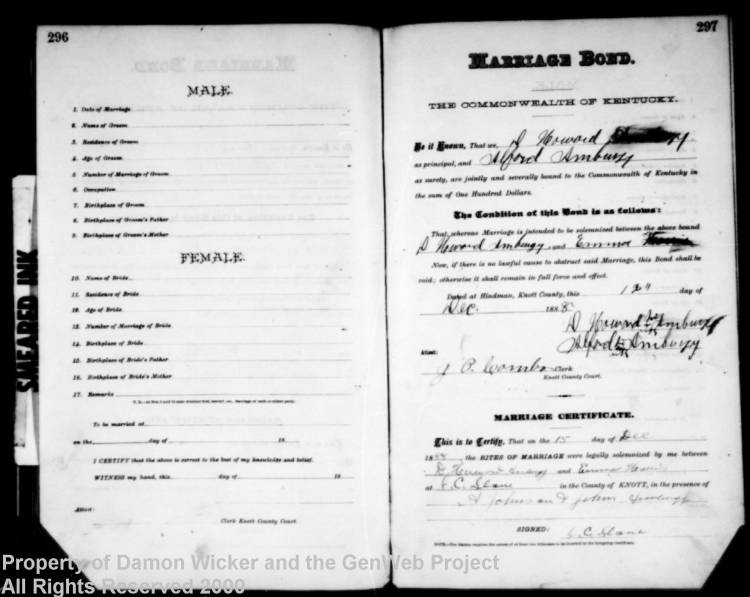 296
MALE.
1. Date of Marriage
2. Name of Groom
3. Residence of Groom
4. Age of Groom
5. Number of Marriage of Groom
6. Occupation
7. Birthplace of Groom
8. Birthplace of Groom's Father
9. Birthplace of Groom's Mother
FEMALE.
10. Name of Bride
11. Residence of Bride
12. Age of Bride
13. Number of Marriage of Bride
14. Birthplace of Bride
15. Birthplace of Bride's Father
16. Birthplace of Bride's Mother
17. Remarks
To be married at
on the day of 18
I CERTIFY that the above is correct to the best of my knowledge and belief.
WITNESS my hand, this day of 18
Attest:
Clerk Knott County Court.
SMEARED INK
297
MARRIAGE BOND.
THE COMMONWEALTH OF KENTUCKY.
Be it Known, That we, D Howard
as principal, and Alford Amburgy
as surety, are jointly and severally bound to the Commonwealth of Kentucky in
the sum of One Hundred Dollars.
The Condition of this Bond is as follows:
That, whereas Marriage is intended to be solemnized between the above bound
D Howard Amburgy and Emma
Now, if there is no lawful cause to obstruct said Marriage, this Bond shall be
void; otherwise it shall remain in full force and effect.
Dated at Hindman, Knott County, this day of
Dec. 1888
D Howard Amburgy
Alford Amburgy
Attest:
J P. Combs Clerk
Knott County Court.
MARRIAGE CERTIFICATE.
This is to Certify, That on the 15 day of Dec
1888 the RITES OF MARRIAGE were legally solemnized by me between
D Howard Amburgy and Emma
at C. Slone in the County of KNOTT, in the presence of
A Johnson & John Amburgy
SIGNED: C Slone
Property of Damon Wicker and the GenWeb Project
All Rights Reserved 2000